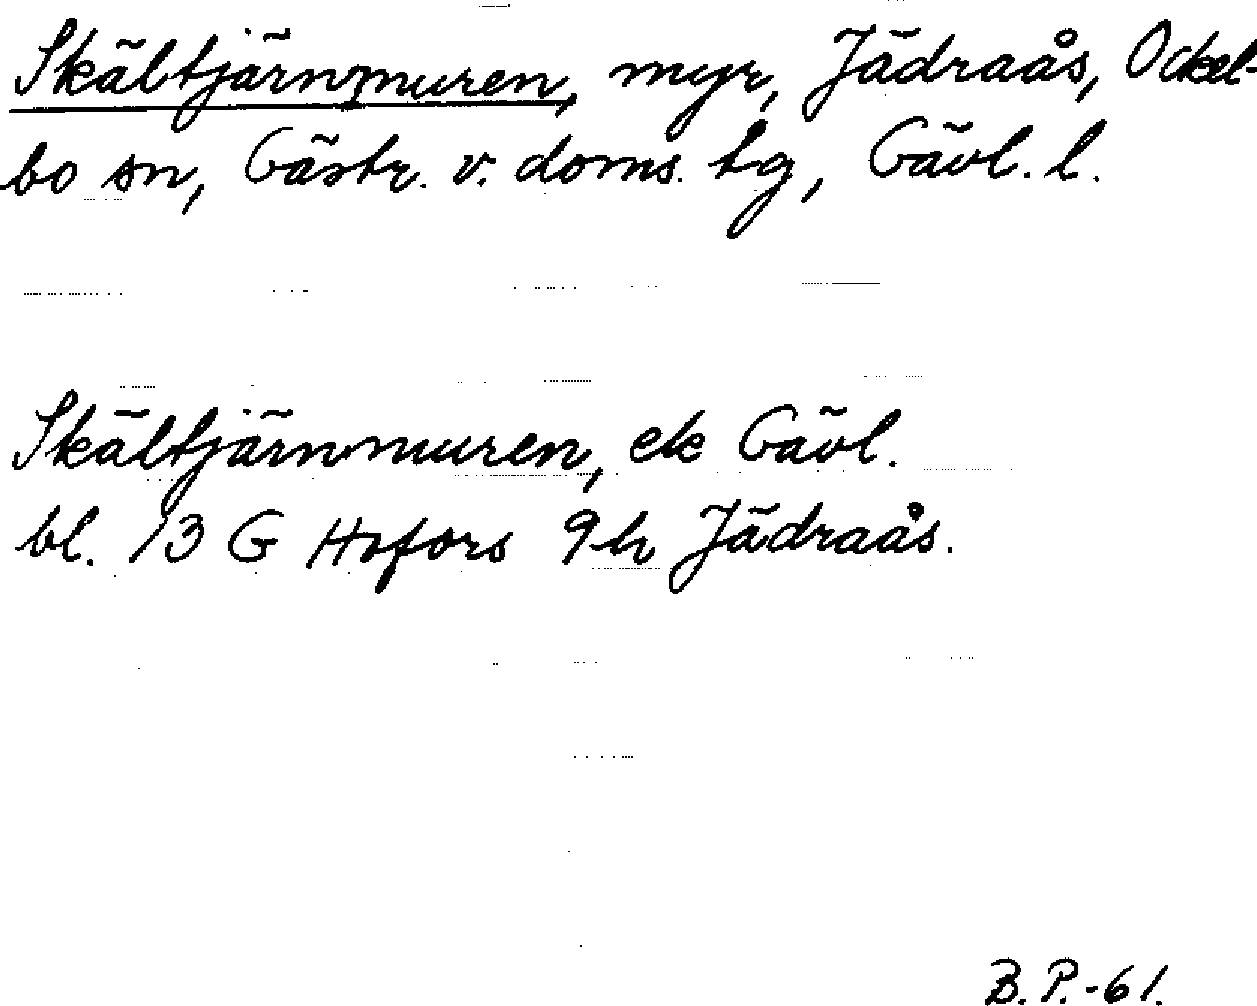 Skältjärnmuren, myr, Jädraås, Ockel-
bo sn, Gästr. v. doms. tg, Gävl. l.
Skältjärnmuren, ek Gävl.
bl. 13 G Hofors 9h Jädraås.
B. P. -61.